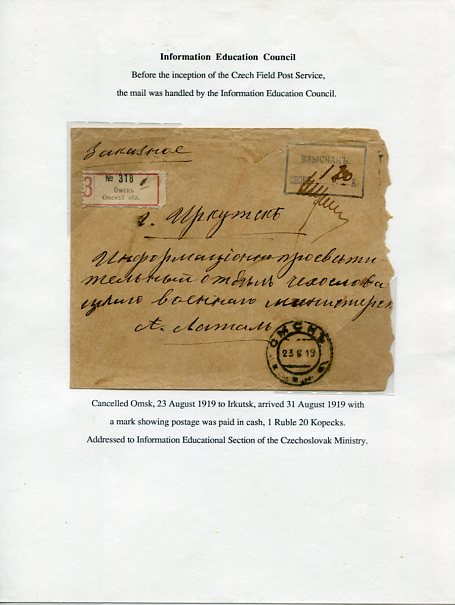 Information Education Council
Before the inception of the Czech Field Post Service,
the mail was handled by the Information Education Council.
Заказное
ВЗЫСКАНЪ
1 20
З
№ 318
Омскъ
Омской обл.
г. Иркутскъ
Информаціоно просвѣти-
тельный отдѣлъ чехослова
цкаго военнаго министерс
А. Латалъ
ОМСКЪ
23 8 19
Cancelled Omsk, 23 August 1919 to Irkutsk, arrived 31 August 1919 with
a mark showing postage was paid in cash, 1 Ruble 20 Kopecks.
Addressed to Information Educational Section of the Czechoslovak Ministry.